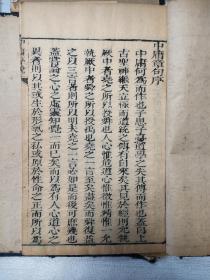 中庸章句序
中庸何爲而作也子思子憂道學之失其傳而作也蓋自上
古聖神繼天立極而道統之傳有自來矣其見於經則允執
厥中者堯之所以授舜也人心惟危道心惟微惟精惟一允
執厥中者舜之所以授禹也堯之一言至矣盡矣而舜復益
之以三言者則所以明夫堯之一言必如是而後可庶幾也
蓋嘗論之心之虛靈知覺一而已矣而以爲有人心道心之
異者則以其或生於形氣之私或原於性命之正而所以爲